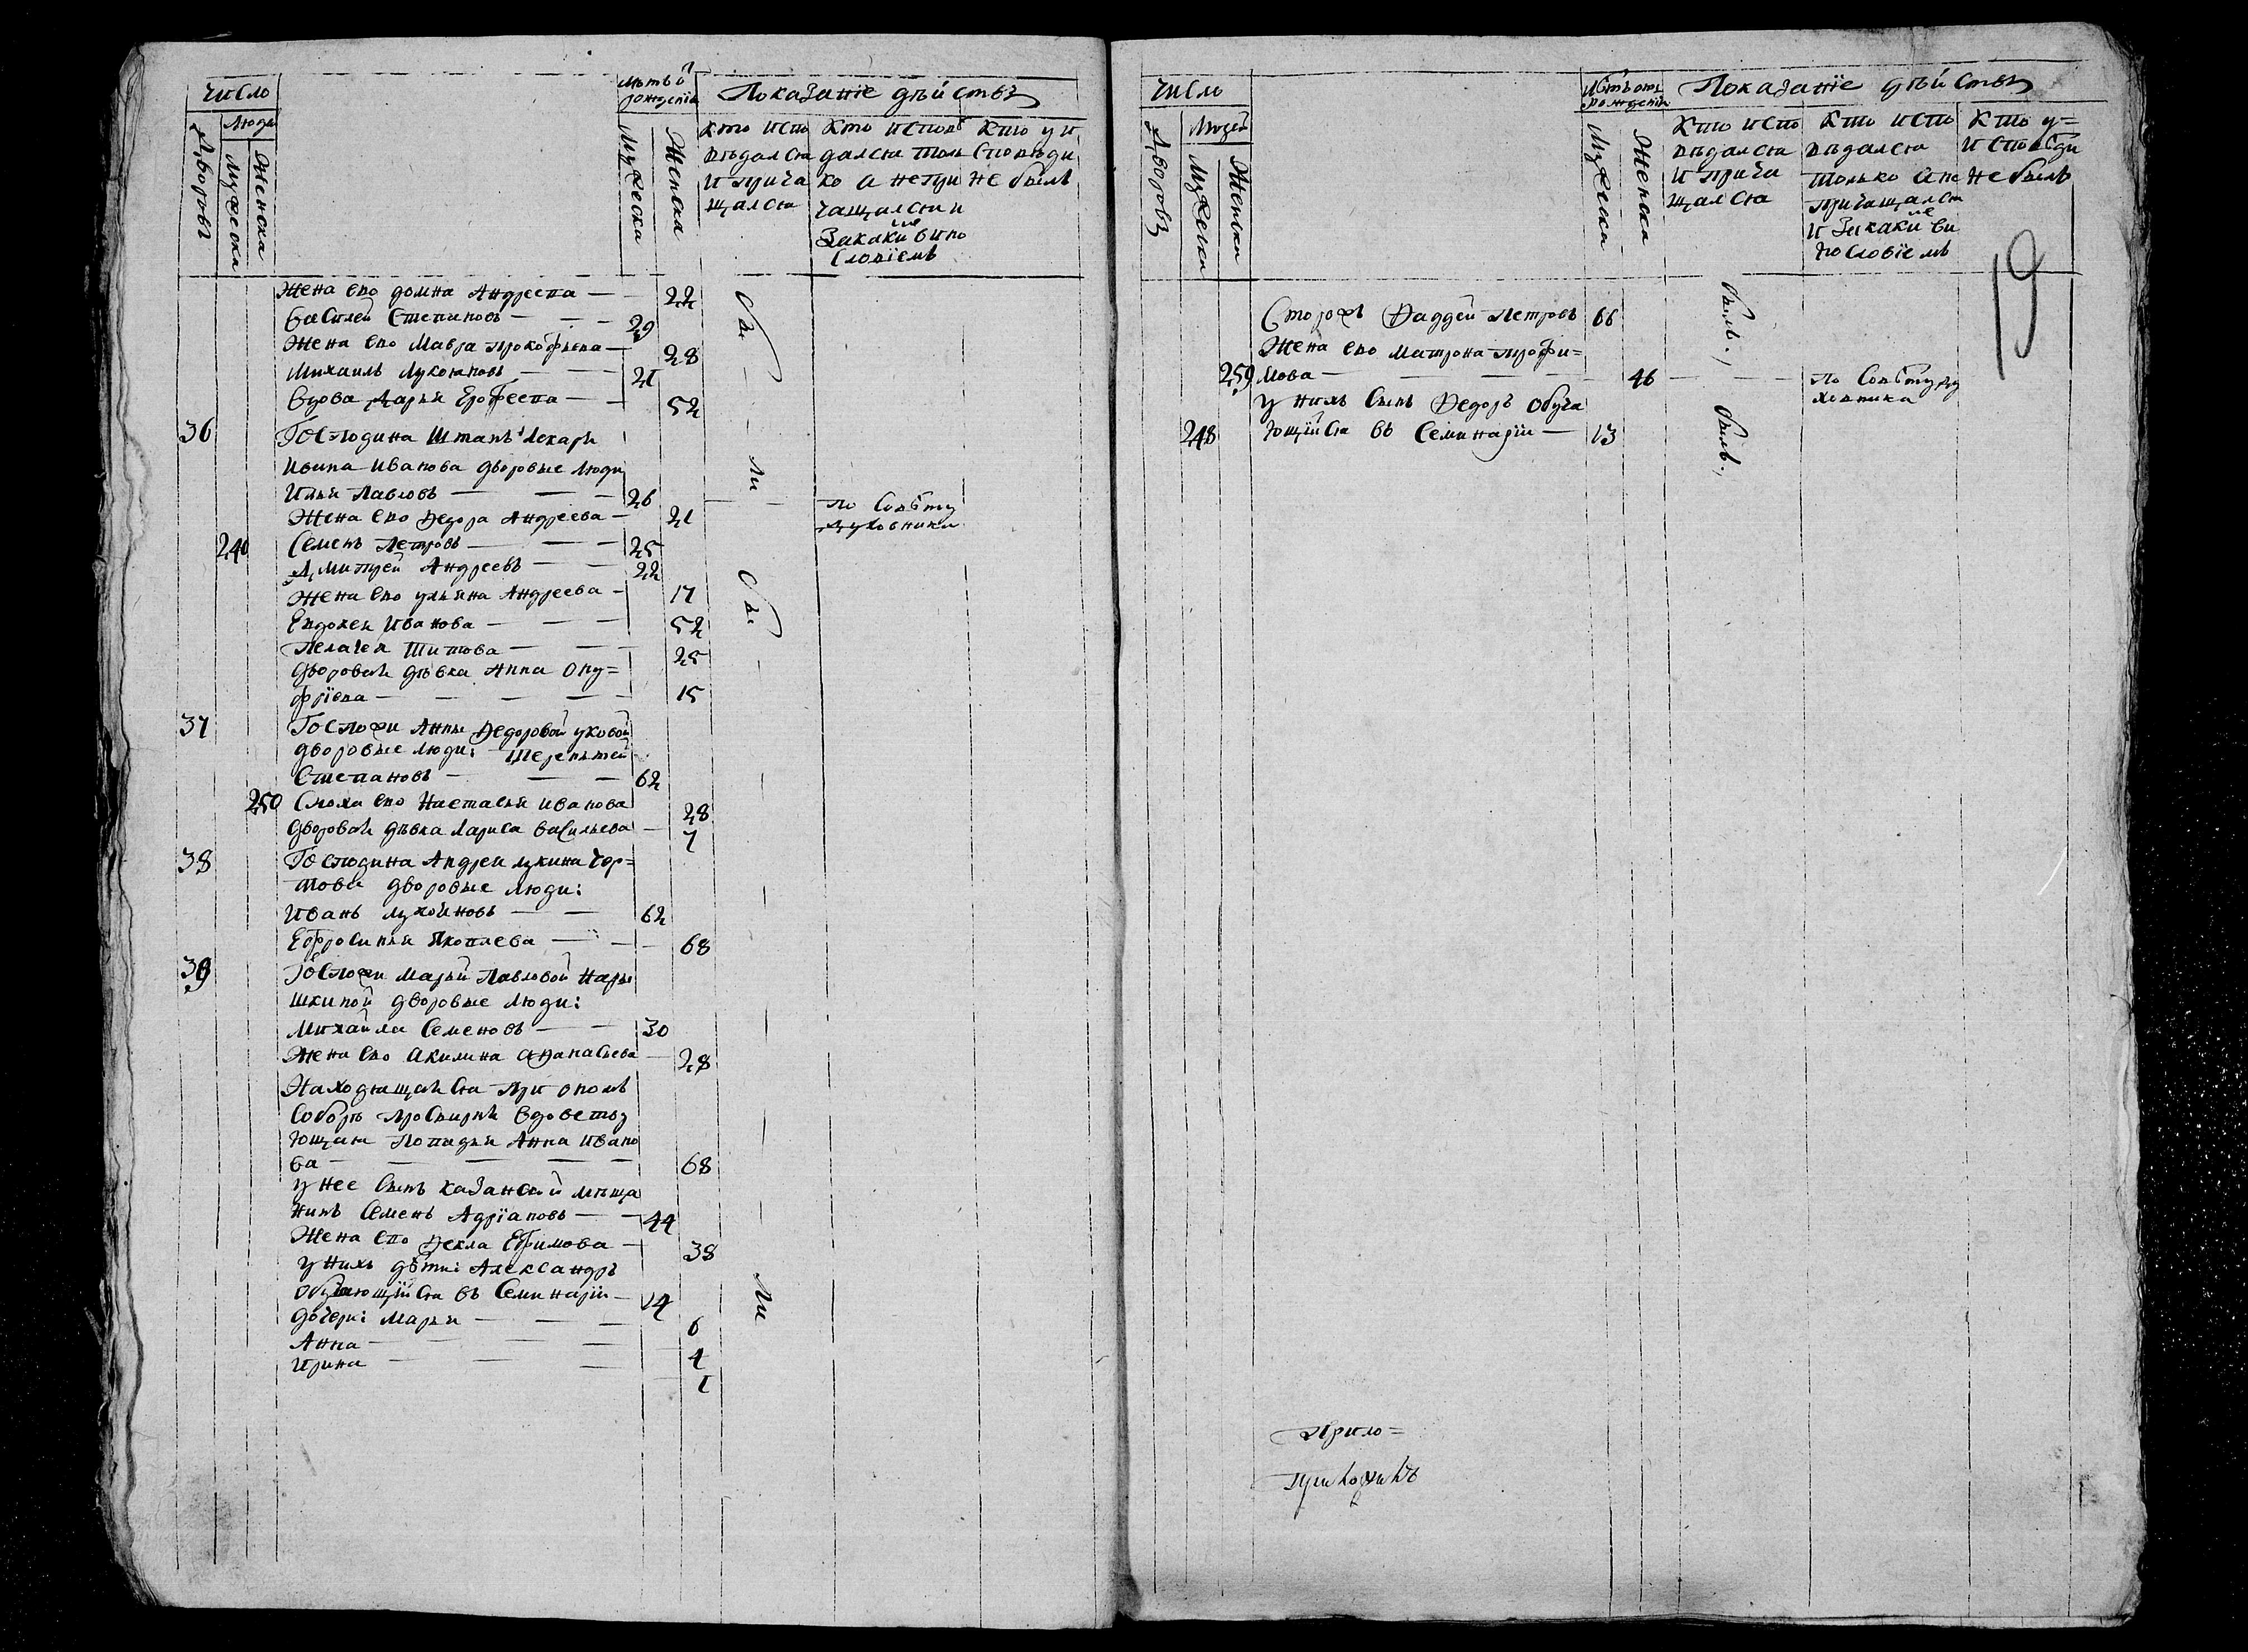 Число
Дворовъ
Люди
Мужеска
Женска
рожденїя
Мужеска
Женска
Показанїе дѣйствъ
Кто испо
вѣдался
и прича
щался
Кто исповѣ
дался толь
ко а непри
чащался и
Закаки винo
словїемъ
Кто у и
споведи
не былъ
Жена ево домна Андреева — 22
Василей Степановъ — 29
Жена ево Мавра прокофьева — 28
Михаилъ Лукояновъ — 21
Вдова Дарья Ерофеева — 52
36 Господина Штапъ лекаря
Ивана Иванова дворовые люди
Илья Павловъ — 26
Жена ево Ѳедора Андреева — 21 По Совѣту
духовника
240 Семенъ Петровъ — 25
Дмитрей Андреевъ — 22
Жена ево ульяна Андреева — 17
Евдокея Иванова — 52
Пелагея Титова — 25
дворовая дѣвка Анна Ону=
фрїева — 15
37 Госпожи Анны Ѳедоровой уковой
дворовые люди:
Степановъ — 62
250 Сноха ево Настасья иванова 28
дворовая дѣвка Лариса васильева — 7
38 Господина Андрея лукина Чер=
това дворовые люди:
Иванъ лукояновъ — 62
Ефросинья Яковлева — 68
39 Госпожи Марьи Павловой Нары
шкиной дворовые люди:
Михайла Семеновъ — 30
Жена ево акилина аѲанасьева — 28
Находящаяся при ономъ
Соборѣ просвирня вдовству
ющая Попадья Анна Ивано
ва — 68
у нее Сынъ казанской мѣща
нинъ Семенъ Адрїановъ — 44
Жена ево Ѳекла Ефимова — 38
у нихъ дѣти: Александръ
обучающїйся въ Семинарїи — 14
дочери: Марья — 6
Анна — 4
Ирина — 1
Бы
ли
Бы
ли
Число
Дворовъ
Людей
Мужеска
Женска
Лѣтъ отъ
рожденїя
Мужеска
Женска
Показанїе дѣйствъ
Кто испо
вѣдался
и прича
щался
Кто испо
вѣдался
только а не
причащался
и Закаки ви
нословїемъ
Кто у=
исповѣди
не былъ
19
Сторожъ Ѳаддей Петровъ 66 былъ.
Жена ево матрона трофи=
259 мова — 46 По Совѣту ду
ховника
у нихъ Сынъ Ѳедоръ обуча
248 ющїйся въ Семинарїи — 13 былъ.